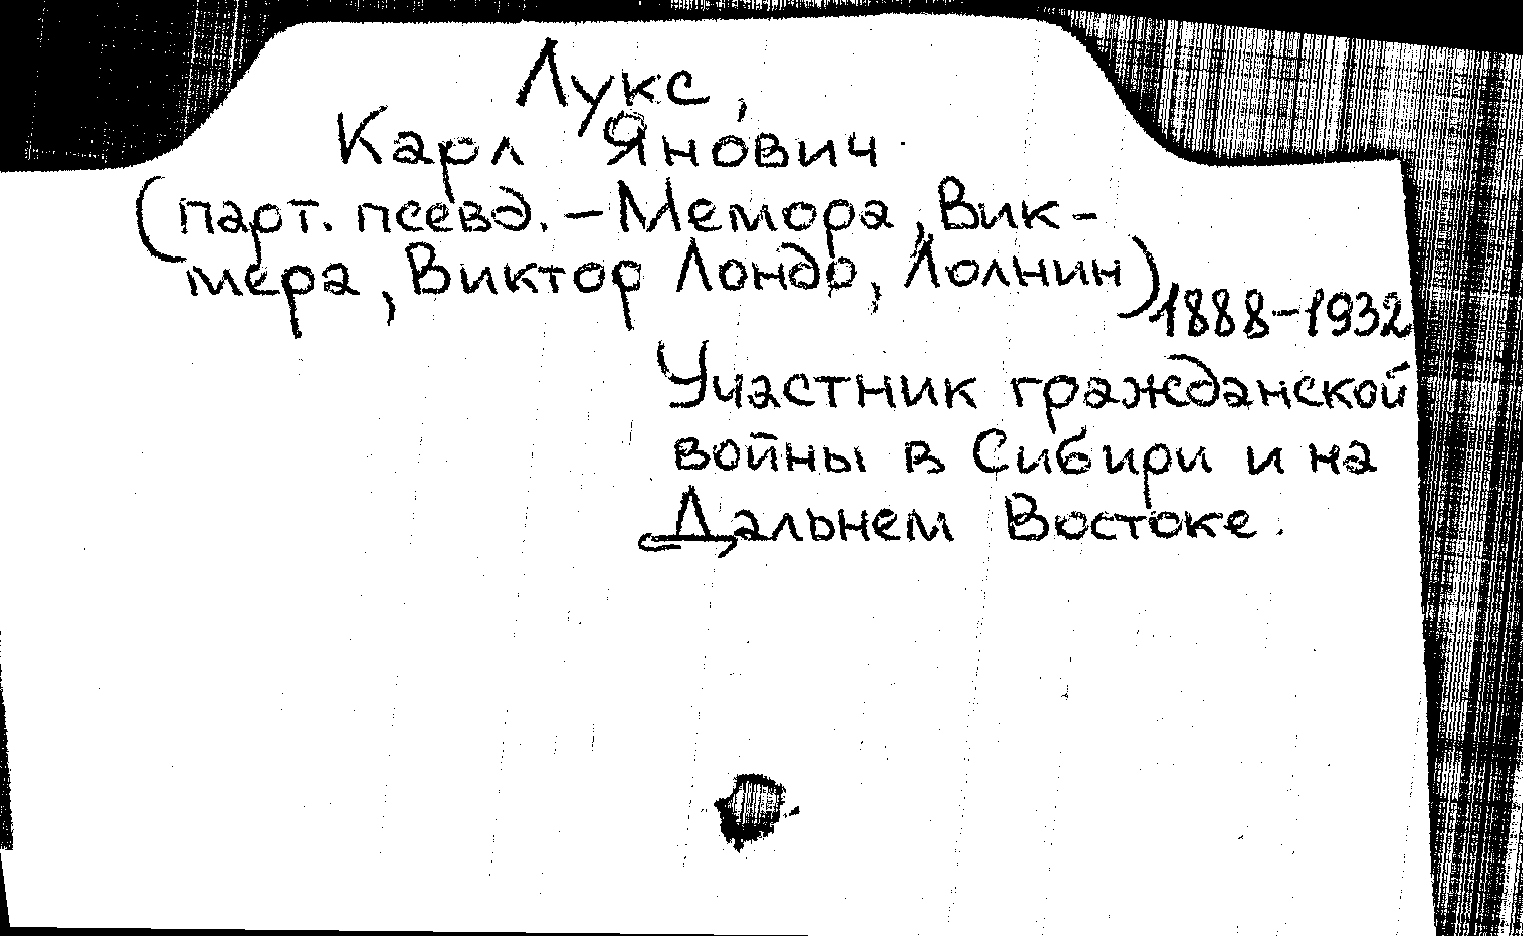 Лукс,
Карл Яно́вич
(парт. псевд. – Мемора, Вик-
мера, Виктор Лондо, Лолнин)
1888–1932
Участник гражданской
войны в Сибири и на
Дальнем Востоке.